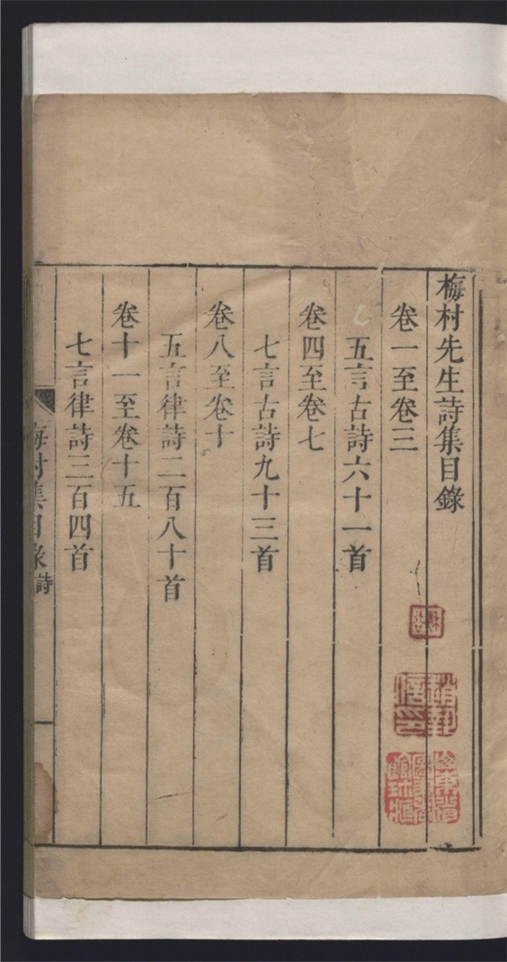 梅村先生詩集目錄
卷一至卷三
五言古詩六十一首
卷四至卷七
七言古詩九十三首
卷八至卷十
五言律詩二百八十首
卷十一至卷十五
七言律詩三百四首
梅村集目錄詩